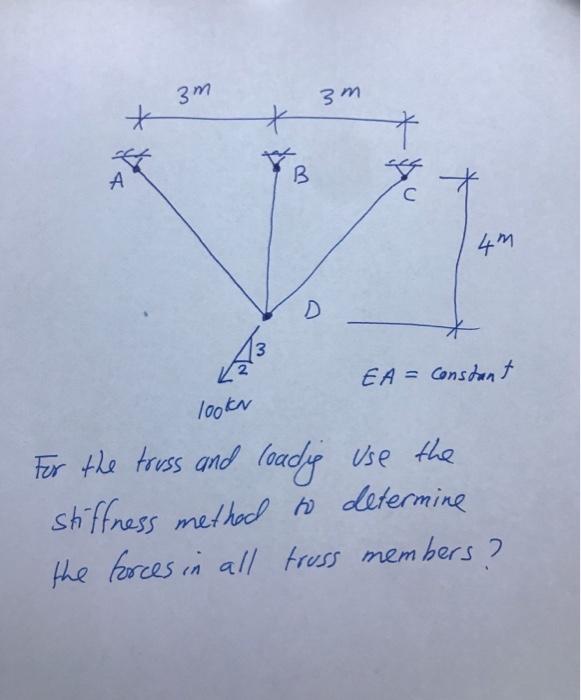 3m 3m
A B C
4m
D
3
2
100kN
EA = Constant
For the truss and loadig Use the
stiffness method to determine
the forces in all truss members?